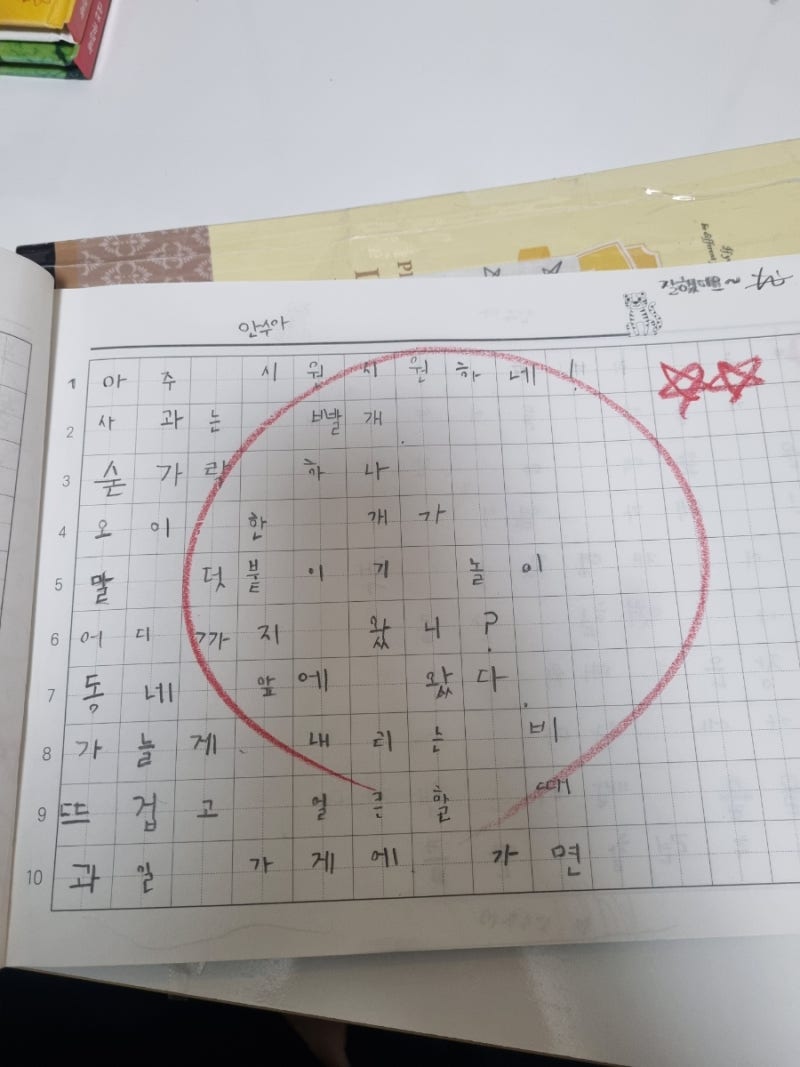 안수아
1 아주 시원시원하네!
2 사과는 빨개
3 숟가락 하나
4 오이 한 개가
5 말 덧붙이기 놀이
6 어디까지 왔니?
7 동네 앞에 왔다.
8 가늘게 내리는 비
9 뜨겁고 얼큰할 때
10 과일 가게에 가면